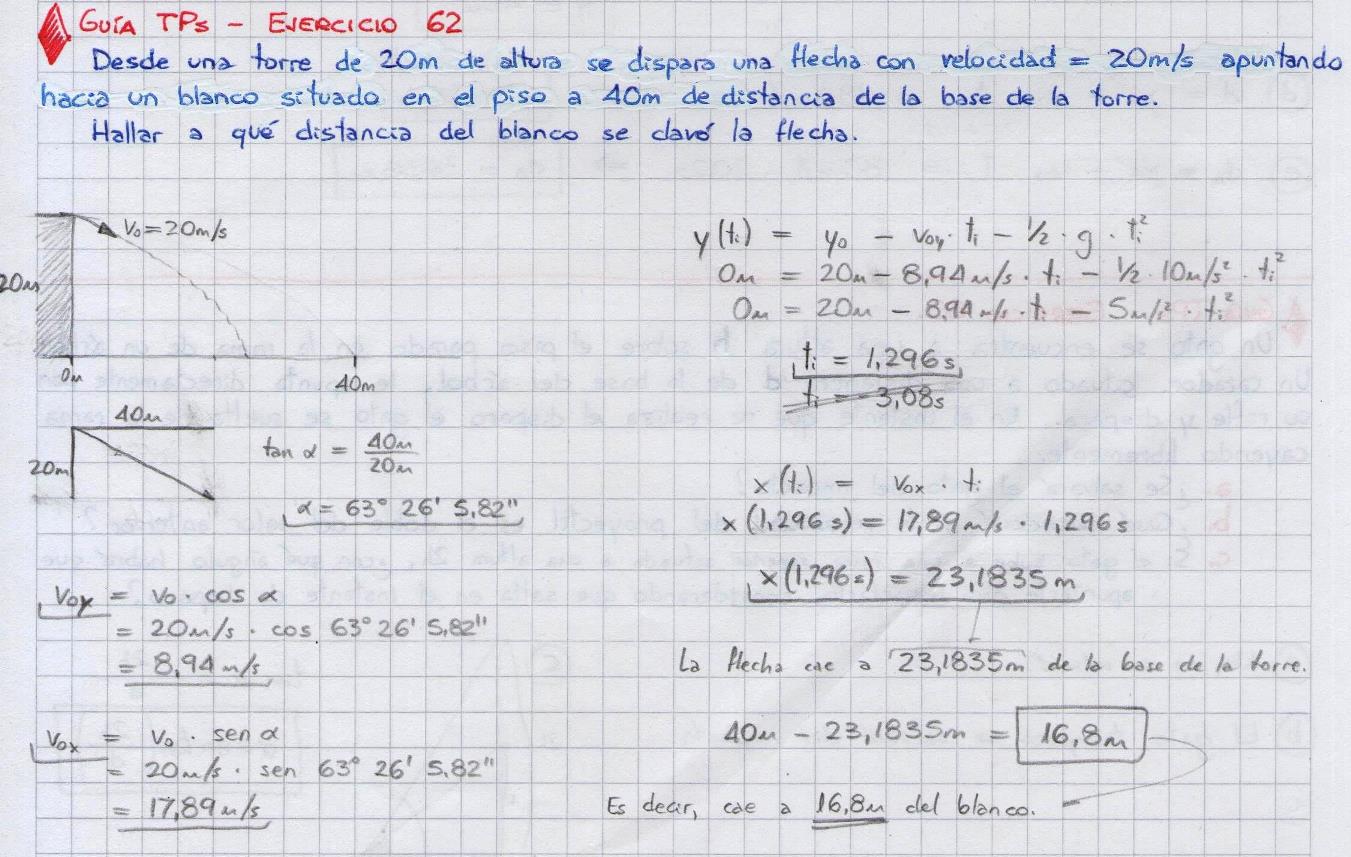 GUÍA TPs - EJERCICIO 62
Desde una torre de 20m de altura se dispara una flecha con velocidad = 20m/s apuntando
hacia un blanco situado en el piso a 40m de distancia de la base de la torre.
Hallar a qué distancia del blanco se clavó la flecha.
V₀ = 20m/s
20m
0m
40m
40m
20m
tan α = 40m/20m
α = 63° 26' 5,82"
V₀y = V₀ · cos α
= 20m/s · cos 63° 26' 5,82"
= 8,94 m/s
V₀x = V₀ · sen α
= 20m/s · sen 63° 26' 5,82"
= 17,89 m/s
y(ti) = y₀ - V₀y · ti - ½ · g · ti²
0m = 20m - 8,94 m/s · ti - ½ · 10m/s² · ti²
0m = 20m - 8,94 m/s · ti - 5m/s² · ti²
ti = 1,296 s
ti = -3,08s
x(ti) = V₀x · ti
x(1,296 s) = 17,89 m/s · 1,296 s
x(1,296 s) = 23,1835 m
La flecha cae a 23,1835m de la base de la torre.
40m - 23,1835m = 16,8m
Es decir, cae a 16,8m del blanco.